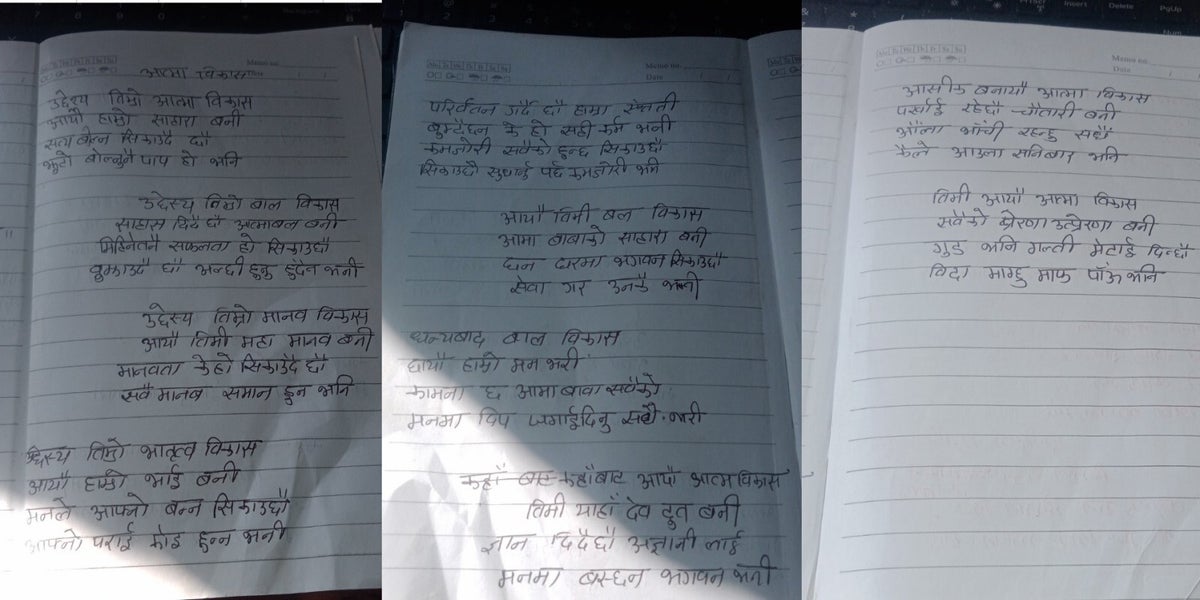 आत्मा विकास
उद्देश्य तिम्रो आत्मा विकास
आयौ हाम्रो साहारा बनी
सत्य बोन्न सिकाउदै छौ
झुटो बोल्नुनै पाप हो भनि
उदेस्य तिम्रो बाल विकास
साहास दिदै छौ आत्माबल बनी
मिहिनेतनै सफलता हो सिकाउछौ
बुझाउदै छौ अल्छी हुनु हुदैन भनी
उदेस्य तिम्रो मानव विकास
आयौ तिमी महा मानव बनी
मानवता के हो सिकाउदै छौ
सवै मानव समान हुन भनि
उदेस्य तिम्रो भातृत्व विकास
आयौ हाम्रो भाई बनी
मनले आफ्नो बन्न सिकाउछौ
आफ्नो पराई कोइ हुन्न भनी
Memo no.
Date
परिर्वतन गर्दै छौ हाम्रा
बुझ्दैछन के हो सही कर्म भनी
कमजोरी सवैको हुन्छ सिकाउछौ
सिकाउछौ सुधार्नु पर्छ कमजोरी भनि
आयौ तिमी बल विकास
आमा बाबाको साहारा बनी
छन घरमा भगवन सिकाउछौ
सेवा गर उनकै भनी
धन्यबाद बाल विकास
छायौ हाम्रो मन भरी
कामना छ आमा बावा सवैको
मनमा दिप जगाईदिनु सधै भरी
कहाँ बाट कहाँबाट आयौ आत्म विकास
तिमी याहाँ देव दुत बनी
ज्ञान दिदैछौ अज्ञानी लाई
मनमा बस्छन भगवन भनी
Memo no.
Date
आसीक बनायौ आत्मा विकास
पर्खाई रहेछौ चौतारी बनी
औंला भाँची रहन्छु सधैं
कैले आउला सनिबार भनि
तिमी आयौ आत्मा विकास
सवैको प्रेरणा उत्प्रेरणा बनी
गुड भनि गल्ती मेटाई दिन्छौ
विदा माग्छु माफ पाँऊ भनि